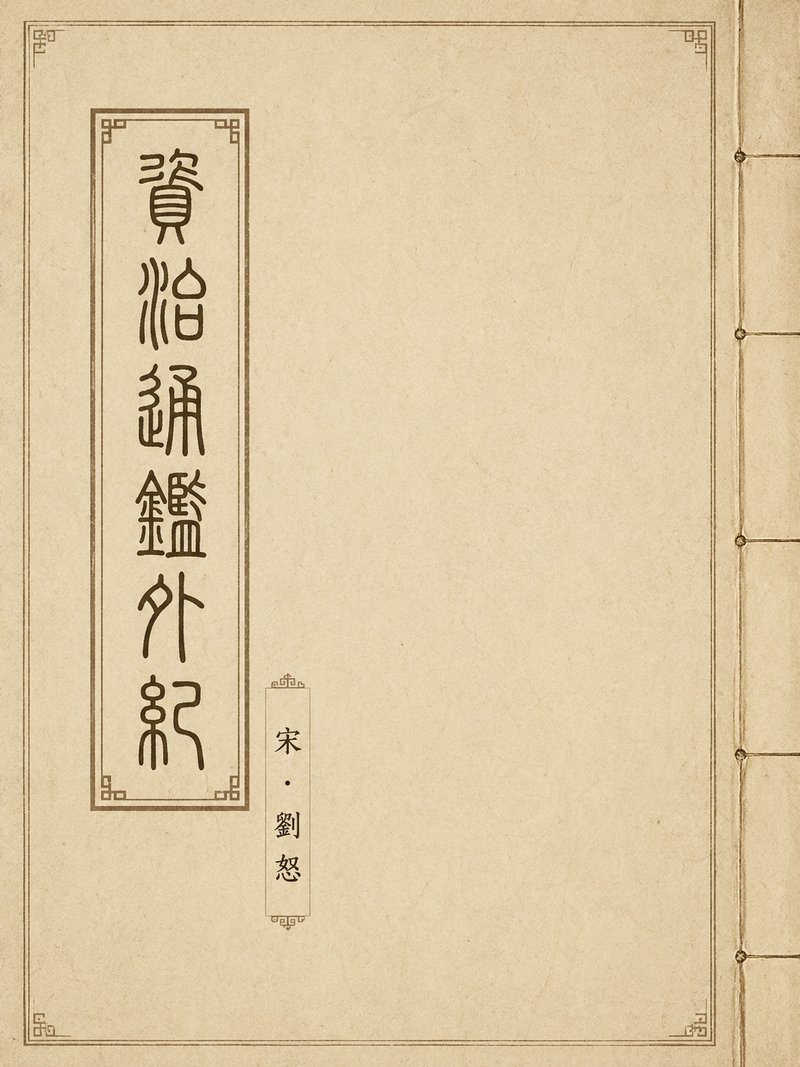 資治通鑑外紀
宋·劉恕